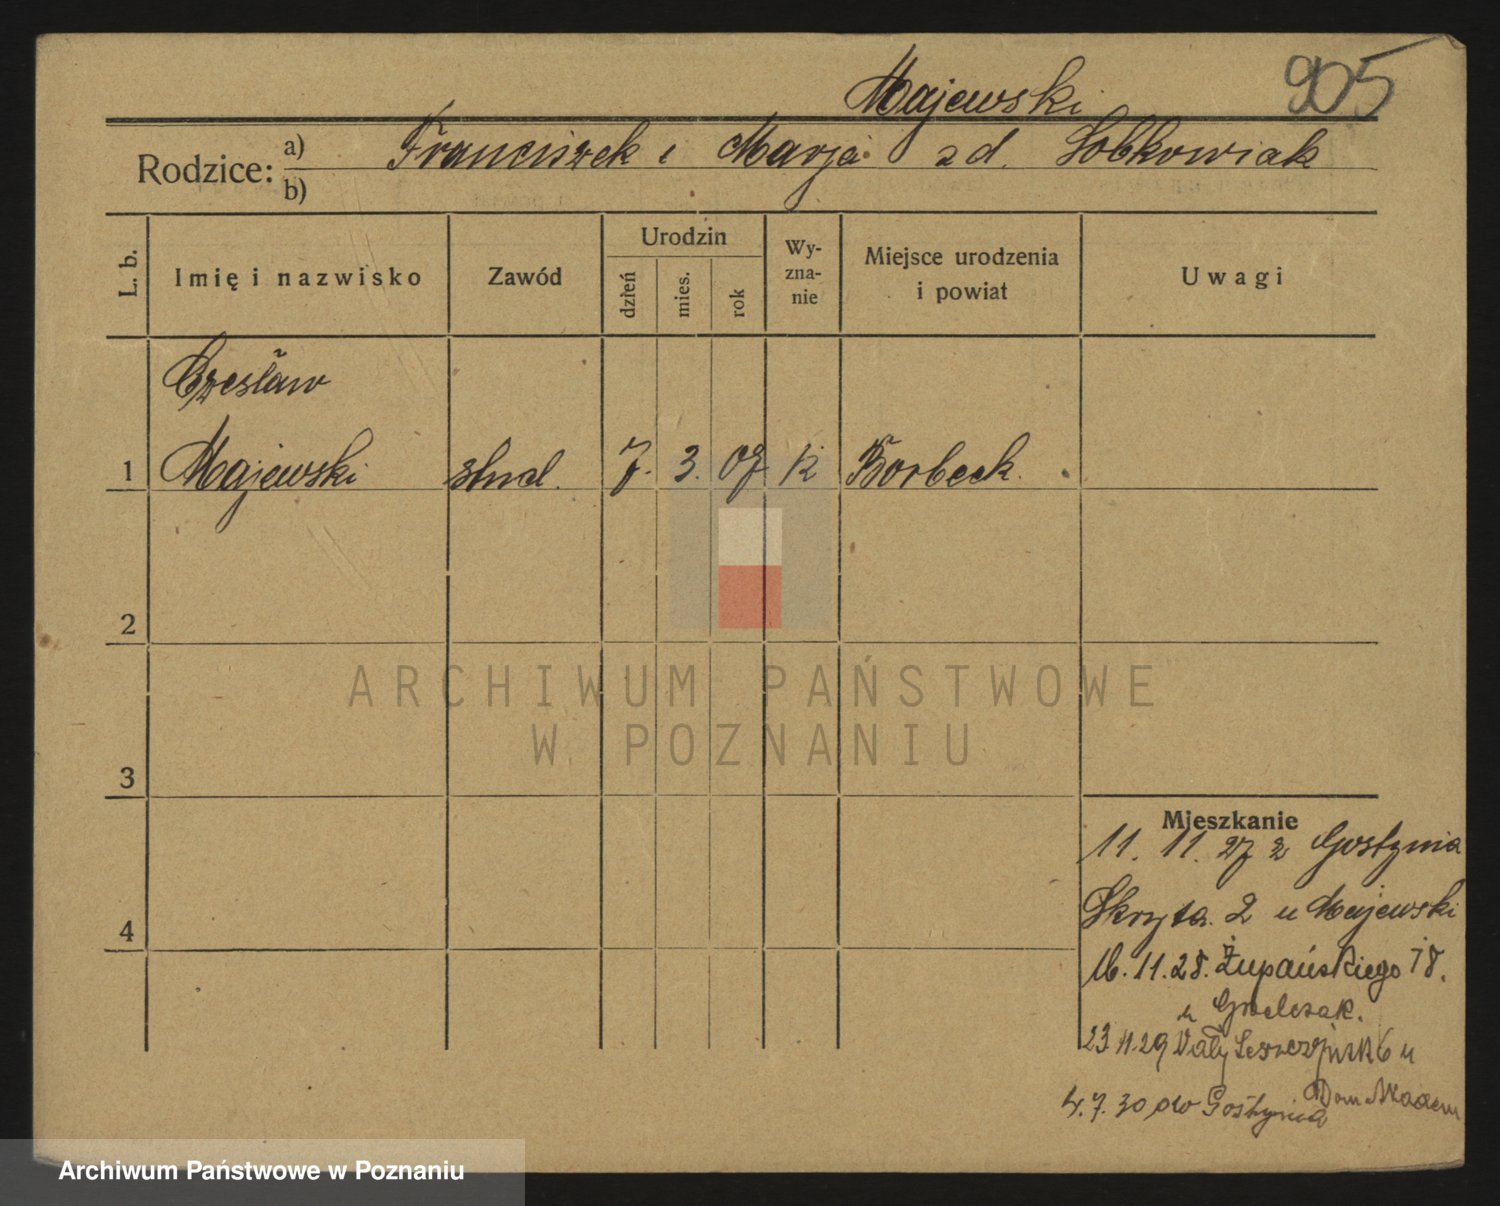 Majewski 905
Rodzice: a) Franciszek i Marja zd. Sobkowiak
b)
L. b. Imię i nazwisko Zawód Urodzin dzień mies. rok Wyznanie Miejsce urodzenia i powiat Uwagi
Czesław
1 Majewski stud. 7. 3. 07 k Borbeck.
2
3
4
Mieszkanie
11. 11. 27 z Gostynia
Skryta. 2 u Majewski
16. 11. 28. Żupańskiego 18.
u
23 11. 29 Wały Leszczyńsk 6 u
Dom Akadem
4. 7. 30 do Gostynia
ARCHIWUM PAŃSTWOWE
W POZNANIU
Archiwum Państwowe w Poznaniu